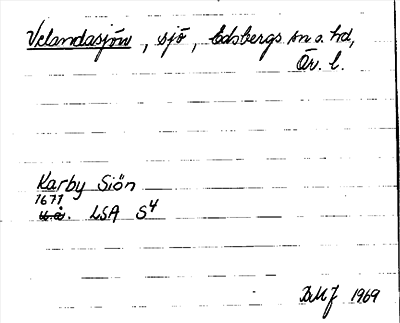 Velandasjön, sjö, Edsbergs sn o. hd,
Ör. l.
Karby Siön
1677
u.å. LSA S4
BMJ 1969